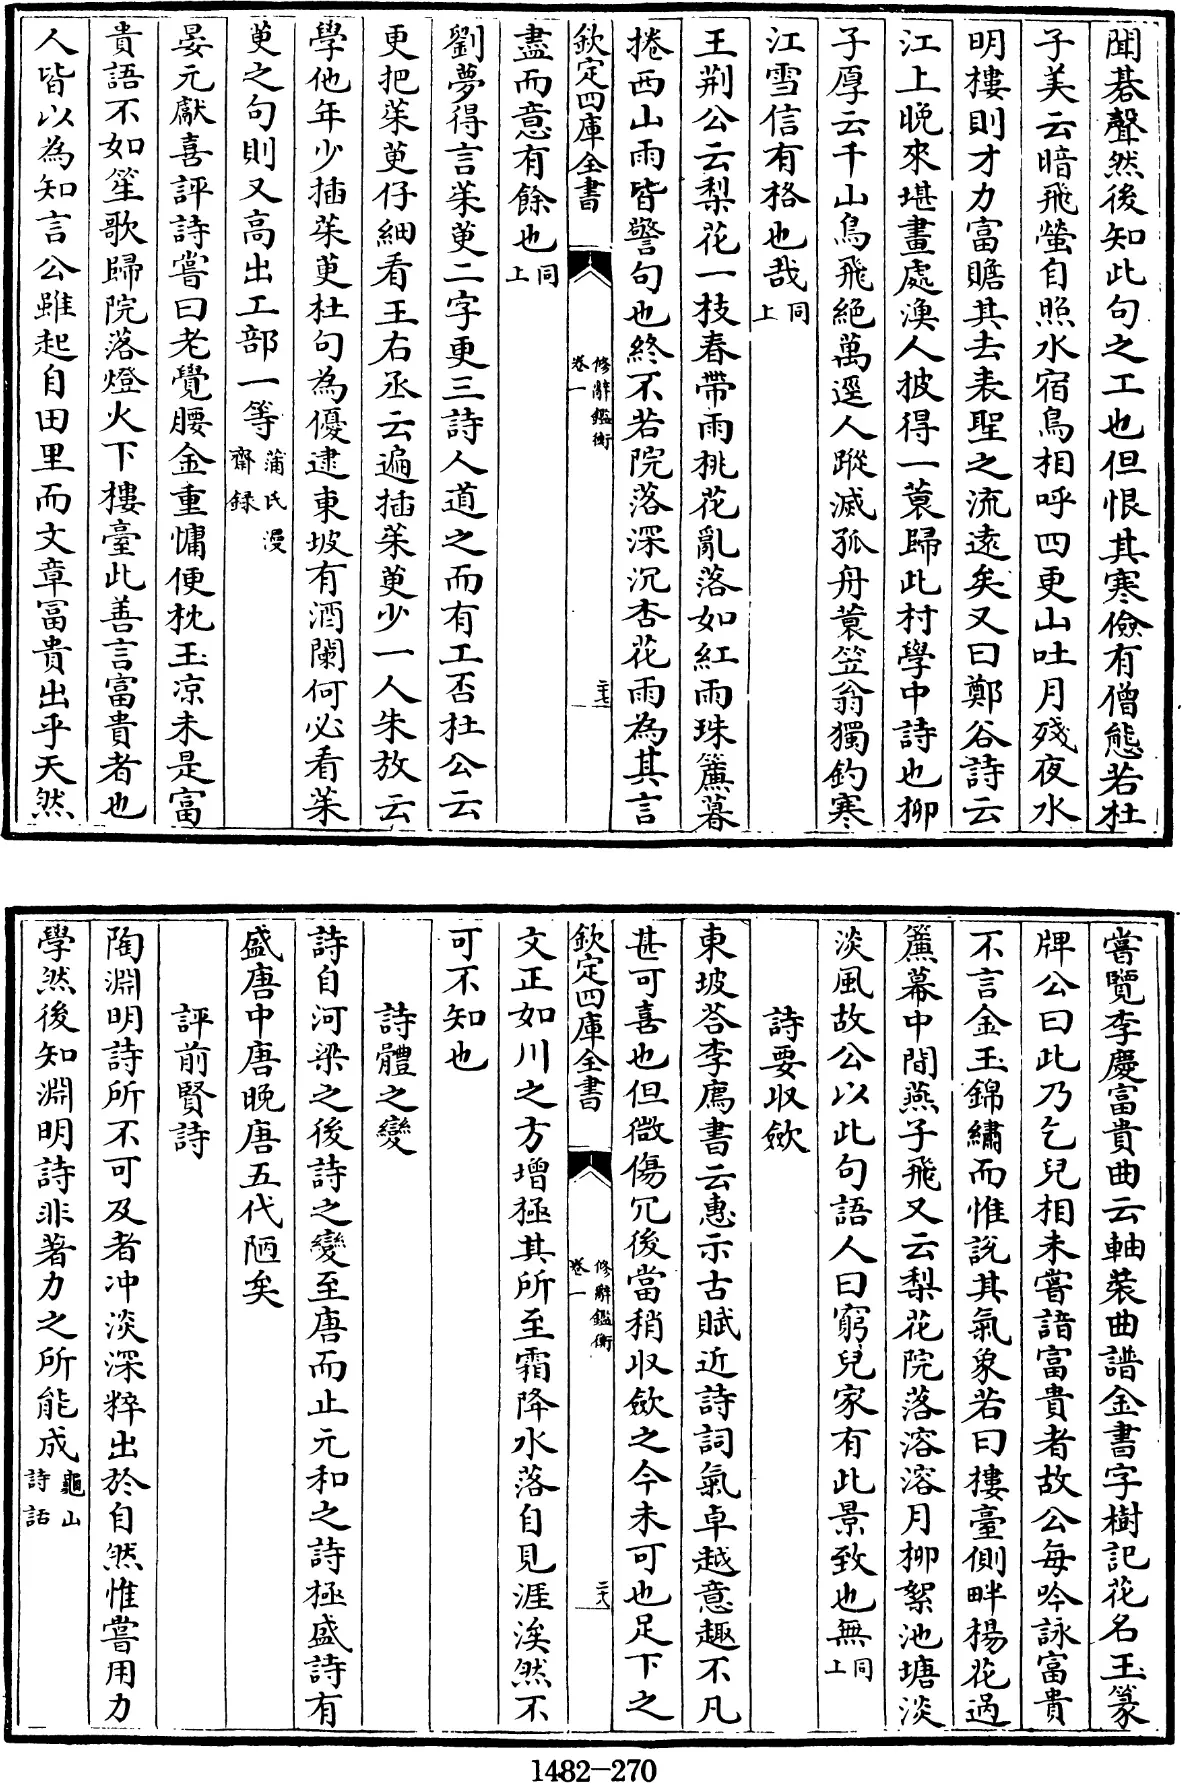 聞碁聲然後知此句之工也但恨其寒儉有僧態若杜
子美云暗飛螢自照水宿鳥相呼四更山吐月殘夜水
明樓則才力富贍其去表聖之流遠矣又曰鄭谷詩云
江上晚來堪畫處漁人披得一蓑歸此村學中詩也柳
子厚云千山鳥飛絕萬逕人蹤滅孤舟蓑笠翁獨釣寒
江雪信有格也哉同上
王荆公云梨花一枝春帶雨桃花亂落如紅雨珠簾暮
捲西山雨皆警句也終不若院落深沉杏花雨為其言
欽定四庫全書 修辭鑑衡 卷一 二十七
盡而意有餘也同上
劉夢得言茱萸二字更三詩人道之而有工否杜公云
更把茱萸仔細看王右丞云遍插茱萸少一人朱放云
學他年少插茱萸杜句為優逮東坡有酒闌何必看茱
萸之句則又高出工部一等蒲氏漫齋録
晏元獻喜評詩嘗曰老覺腰金重慵便枕玉凉未是富
貴語不如笙歌歸院落燈火下樓臺此善言富貴者也
人皆以為知言公雖起自田里而文章富貴出乎天然
嘗覽李慶富貴曲云軸装曲譜金書字樹記花名玉篆
牌公曰此乃乞兒相未嘗諳富貴者故公每吟詠富貴
不言金玉錦繡而惟說其氣象若曰樓臺側畔楊花過
簾幕中間燕子飛又云梨花院落溶溶月柳絮池塘淡
淡風故公以此句語人曰窮兒家有此景致也無同上
詩要收斂
東坡荅李廌書云惠示古賦近詩詞氣卓越意趣不凡
甚可喜也但微傷冗後當稍收斂之今未可也足下之
欽定四庫全書 修辭鑑衡 卷一 二十八
文正如川之方增極其所至霜降水落自見涯涘然不
可不知也
詩體之變
詩自河梁之後詩之變至唐而止元和之詩極盛詩有
盛唐中唐晚唐五代陋矣
評前賢詩
陶淵明詩所不可及者冲淡深粹出於自然惟嘗用力
學然後知淵明詩非著力之所能成龜山詩話
1482-270